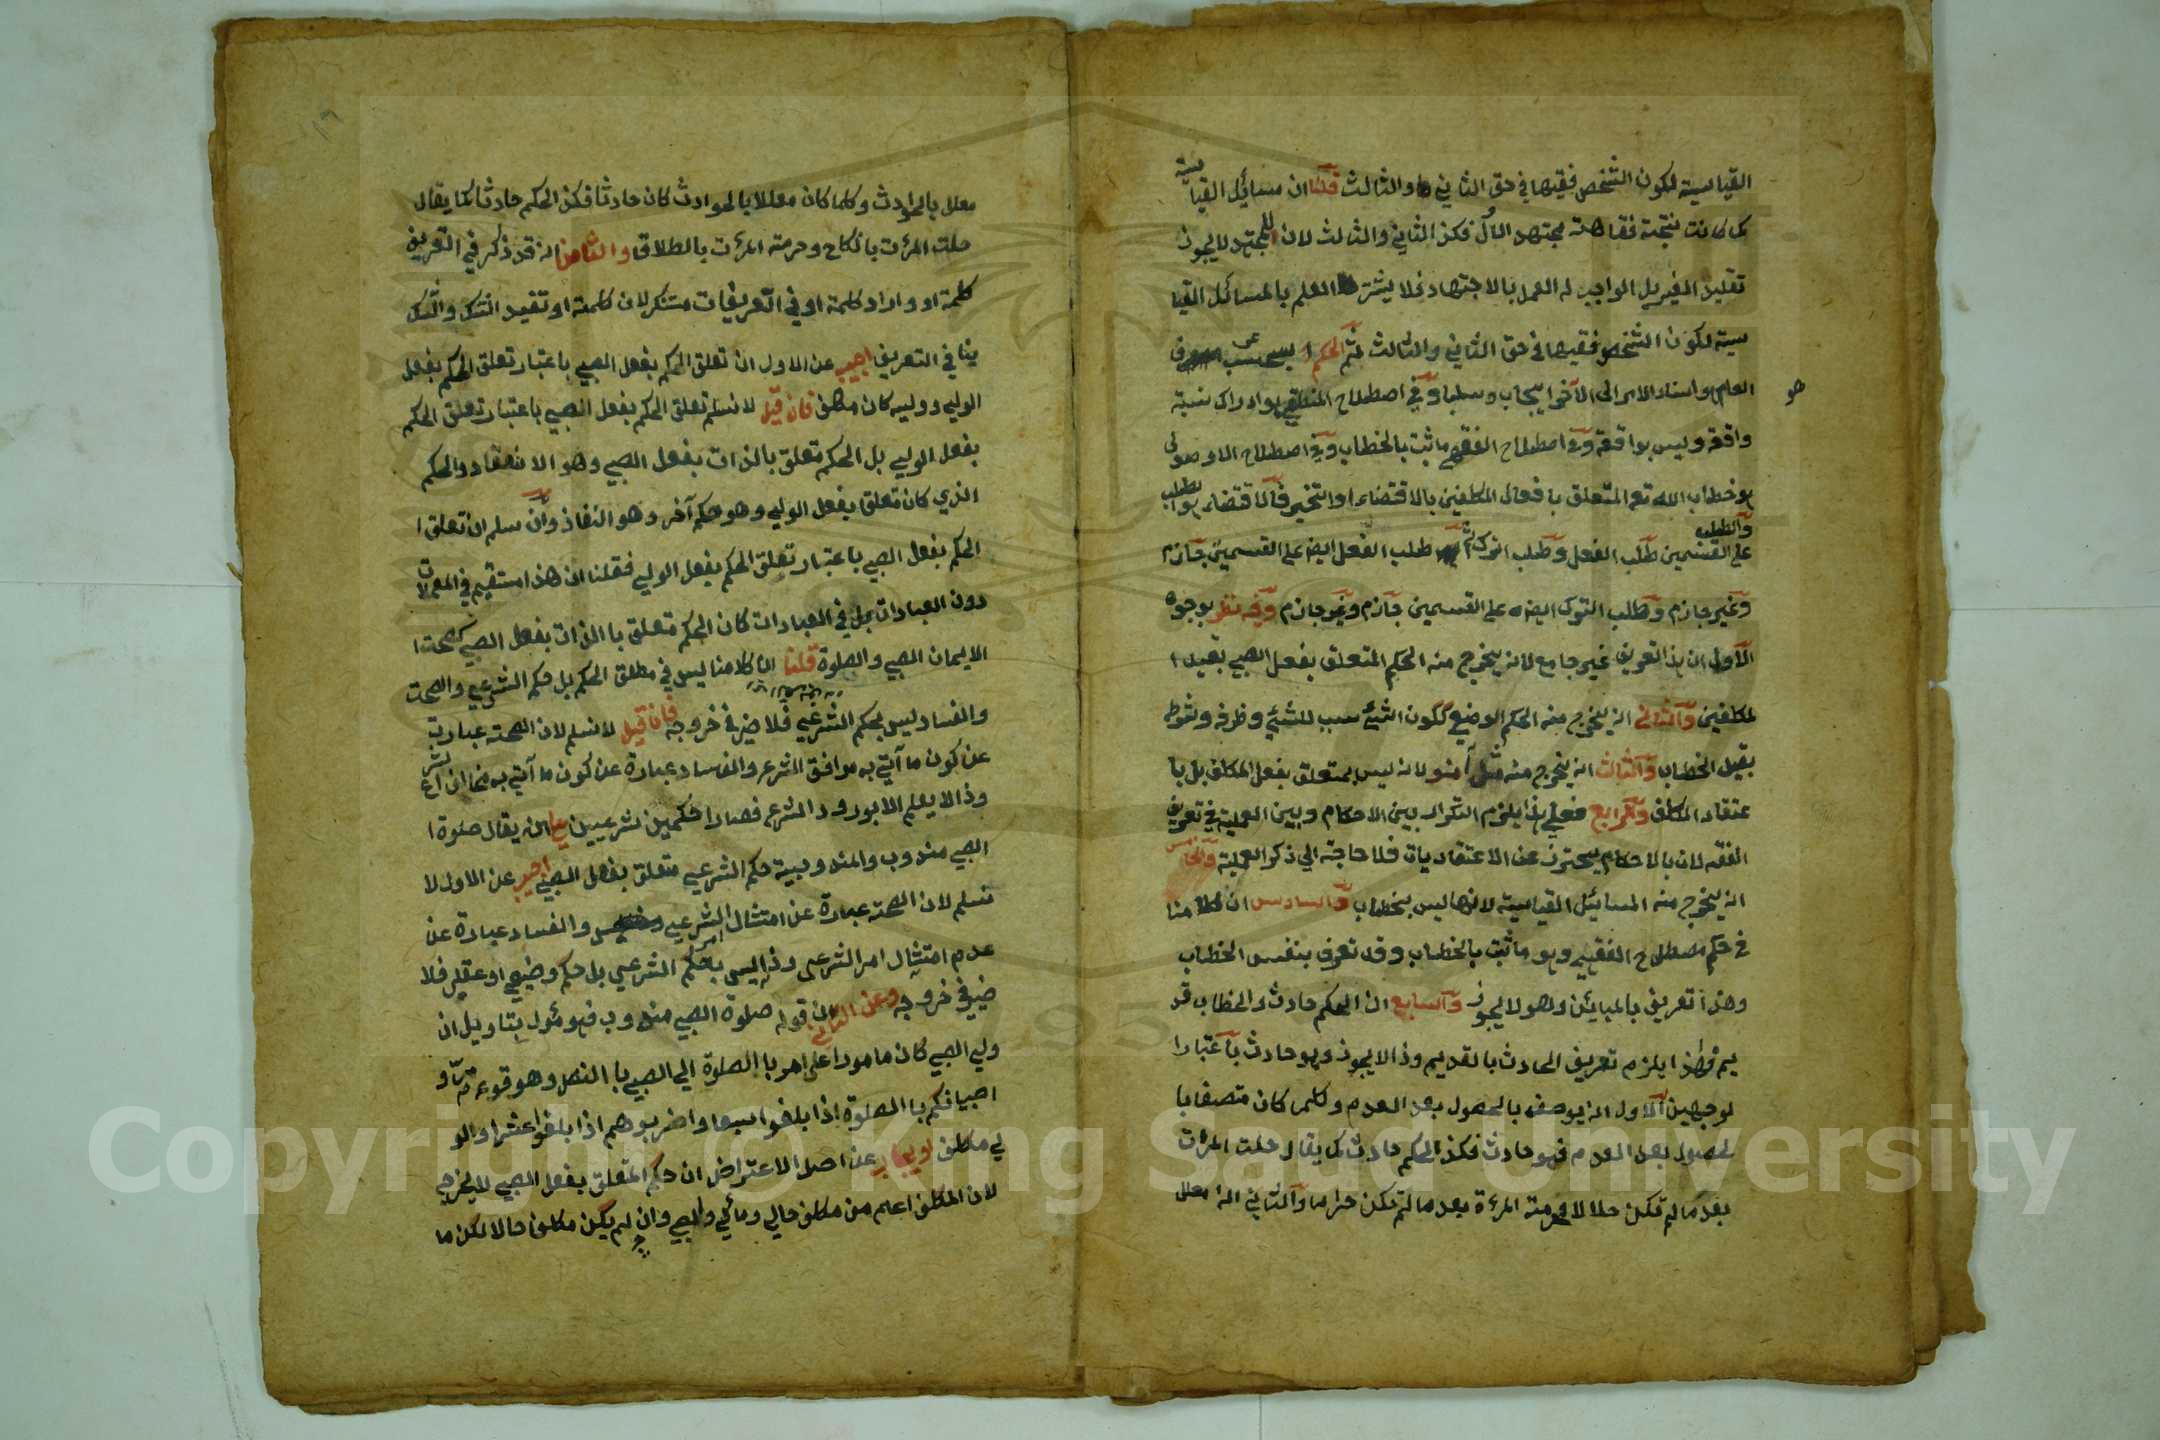 القياسية لكون الشخص فقيها في حق الثاني والثالث قلنا ان مسائل القياسية
كما كانت نتيجة فقاهة مجتهد الاول فكذا الثاني والثالث لان المجتهد لا يجوز
تقليد الغير بل الواجب له العمل بالاجتهاد فلا يشترط العلم بالمسائل القيا
سية لكون الشخص فقيها في حق الثاني والثالث ثم الحكم في
العام هو اسناد الامر الى الآخر ايجاب وسلبا وفي اصطلاح المنطقي هو ادراك نسبة
واقعة وليس بواقعة وفي اصطلاح الفقهي ما ثبت بالخطاب وفي اصطلاح الاوصولى
هو خطاب الله تع المتعلق بافعال المكلفين بالاقتضاء او التخير فالاقتضاء هو الطلب
والطلب
على القسمين طلب الفعل وطلب الترك ثم طلب الفعل ايضا على القسمين جازم
وغير جازم وطلب الترك ايضا على القسمين جازم وغير جازم وفيه نظر بوجوه
الاول ان هذا تعريف غير جامع لانه يخرج منه الحكم المتعلق بفعل الصبي بقيد ا
لمكلفين والثاني انه يخرج منه الحكم الوضيع ككون الشيء سبب للشيء وظرف وشرط
بقيد الخطاب والثالث انه يخرج منه مثل آمنو لانه ليس بمتعلق بفعل المكلف بل با
عتقاد المكلف والرابع فعلى هذا يلزم التكرار بين الاحكام وبين العملية في تعريف
الفقه لان بالاحكام يحترز عن الاعتقاديات فلا حاجة الى ذكر العملية والخامس
انه يخرج منه المسائل القياسية لانها ليس بخطاب والسادس ان كلامنا
في حكم مصطلاح الفقهي وهو ما ثبت بالخطاب وقد تعرف بنفس الخطاب
وهذا تعريف بالمبائن وهو لا يجوز والسابع ان الحكم حادث والخطاب قد
يم فهذا يلزم تعريف الحادث بالقديم وذا لا يجوز وهو حادث باعتبارا
لوجهين الاول انه يوصف بالحصول بعد العدم وكلما كان متصفا با
لحصول بعد العدم فهو حادث فكذا الحكم حادث كما يقال حلت المرات
بعد ما لم تكن حلالا وحرمة المرءة بعد ما لم تكن حراما والثاني انه معلل
هو
معلل بالحوادث وكلما كان معللا بالحوادث كان حادثا فكذا الحكم حادثا كما يقال
حلت المرءت بانكاح وحرمة المرءت بالطلاق والثامن انه قد ذكر في التعريف
كلمة او وايراد كلمة او في التعريفات مستنكر لان كلمة او تفيد الشك والشك
ينافي التعريف اجيب عن الاول ان تعلق الحكم بفعل الصبي باعتبار تعلق الحكم بفعل
الولي ووليه كان مكلف فان قيل لا نسلم تعلق الحكم بفعل الصبي باعتبار تعلق الحكم
بفعل الولي بل الحكم تعلق بالذات بفعل الصبي وهو الانعقاد والحكم
الذي كان تعلق بفعل الولي وهو حكم آخر وهو النفاذ وان سلم ان تعلق ا
لحكم بفعل الصبي باعتبار تعلق الحكم بفعل الولي فقلنا ان هذا مستقيم في المعملات
دون العبادات بل في العبادات كان الحكم متعلق بالذات بفعل الصبي كصحت ا
لايمان الصبي والصلوة قلنا ان كلامنا ليس في مطلق الحكم بل حكم الشرعي والصحت
والفساد ليس بحكم الشرعي فلا ضير في خروجه فان قيل لا نسلم لان الصحة عبارت
عن كون ما آتي به موافق الشرع والفساد عبارة عن كون ما آتي به مخالف
وذا لا يعلم الا بورود الشرع فصارا حكمين شرعيين على انه يقال صلوة ا
الصبي مندوب والمندوبية حكم الشرعي متعلق بفعل الصبي اجيب عن الاول لا
نسلم لان الصحة عبارة عن امتثال امر الشرعي والفساد عبارة عن
عدم امتثال امر الشرعى وذا ليس بحكم الشرعي بل حكم وضيعي او عقلى فلا
ضير في خروجه وعن الثاني ان قوله صلوة الصبي مندوب فهو مئول بتاويل ان
ولي الصبي كان مامورا على امر با الصلوة الي الصبي با النص وهو قوله ع م مروا
صبيانكم با الصلوة اذا بلغوا سبعا واضربوهم اذا بلغوا عشرا والو
لي مكلف او يجاب عن اصل الاعتراض ان حكم المتعلق بفعل الصبي لا يخرج
لان المكلف اعلم من مكلف حالي ومآئي والصبي وان لم يكن مكلف حالا لكن ما
Copyright © King Saud University